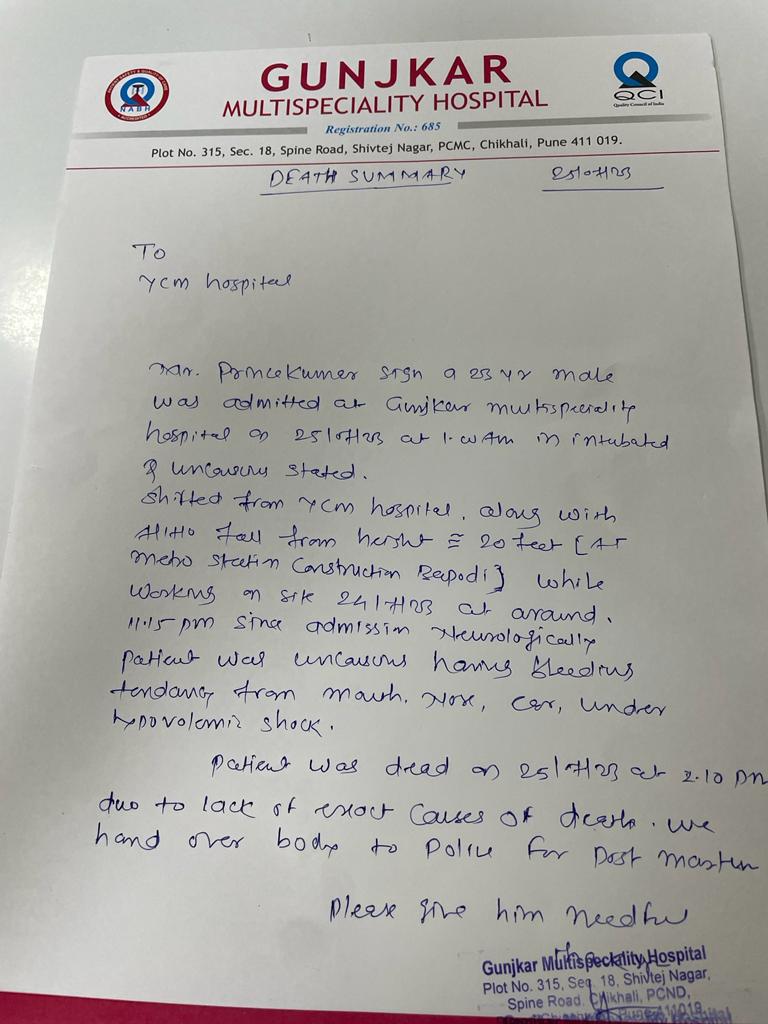 NABH
QCI
Quality Council of India
GUNJKAR
MULTISPECIALITY HOSPITAL
Registration No.: 685
Plot No. 315, Sec. 18, Spine Road, Shivtej Nagar, PCMC, Chikhali, Pune 411 019.
DEATH SUMMARY 25/07/23
To
YCM hospital
Mr. Princekumer a 23 yr male
was admitted at Gunjkar multispeciality
hospital on 25/07/23 at in intubated
& stated.
Shifted from YCM hospital, along with
fall from height ≅ 20 feet [At
Construction Bapodi] while
working on site 24/7/23 at around.
11.15 pm since admission Neurologically
patient was having bleeding
from mouth, Nose, ear, under
shock.
patient was dead on 25/7/23 at 2.10 pm
due to lack of exact causes of death. we
hand over body to police for post
Please give him needful
Gunjkar Multispeciality Hospital
Plot No. 315, Sec. 18, Shivtej Nagar,
Spine Road, Chikhali, PCND,
Pune 411019